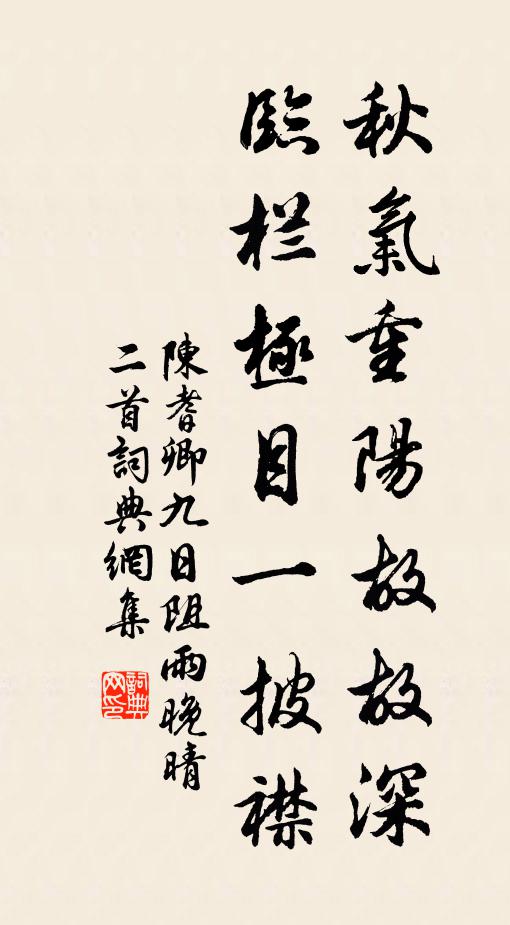 秋氣重陽故故深
臨栏極目一披襟
陳耆卿九日阻雨晚晴
二首詞典網集
詞典
网印